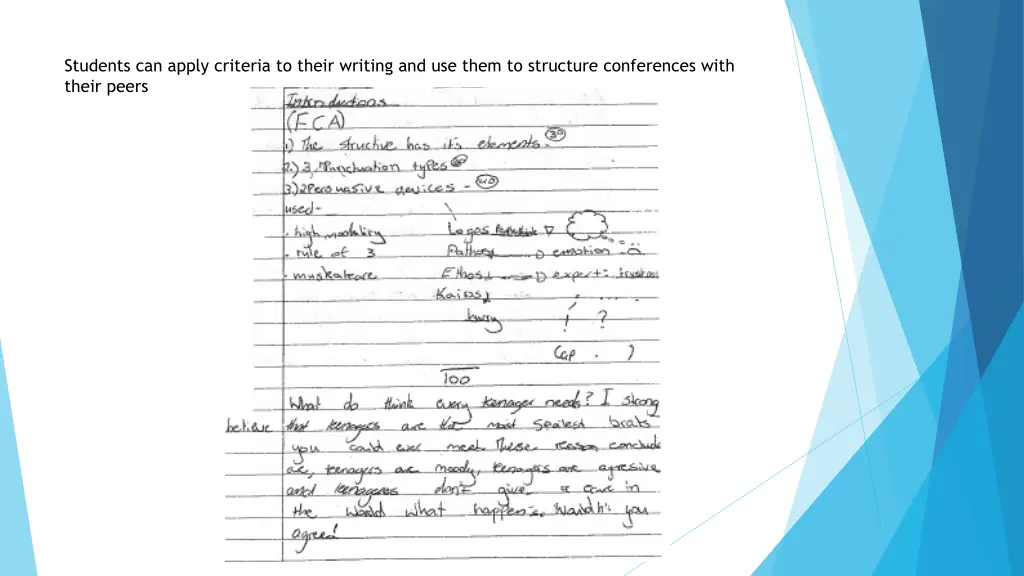 Students can apply criteria to their writing and use them to structure conferences with
their peers
Introductions
(FCA)
1) The structure has it's elements. 30
2.) 3. Punctuation types
3.) 2 Perouasive devices - 40
used-
- high modality Logos
- rule of 3 Pathos emotion
- muskateare Ethos expert:
Kairos
hurry ! ?
Cap . )
100
What do think every teenager needs? I strong
believe that teenagers are the most spealest brats
you could ever meet. These reason conclude
are, teenagers are moody, teenagers are agresive
and teenageres don't give a care in
the would what happens. Wouldn't you
agree!